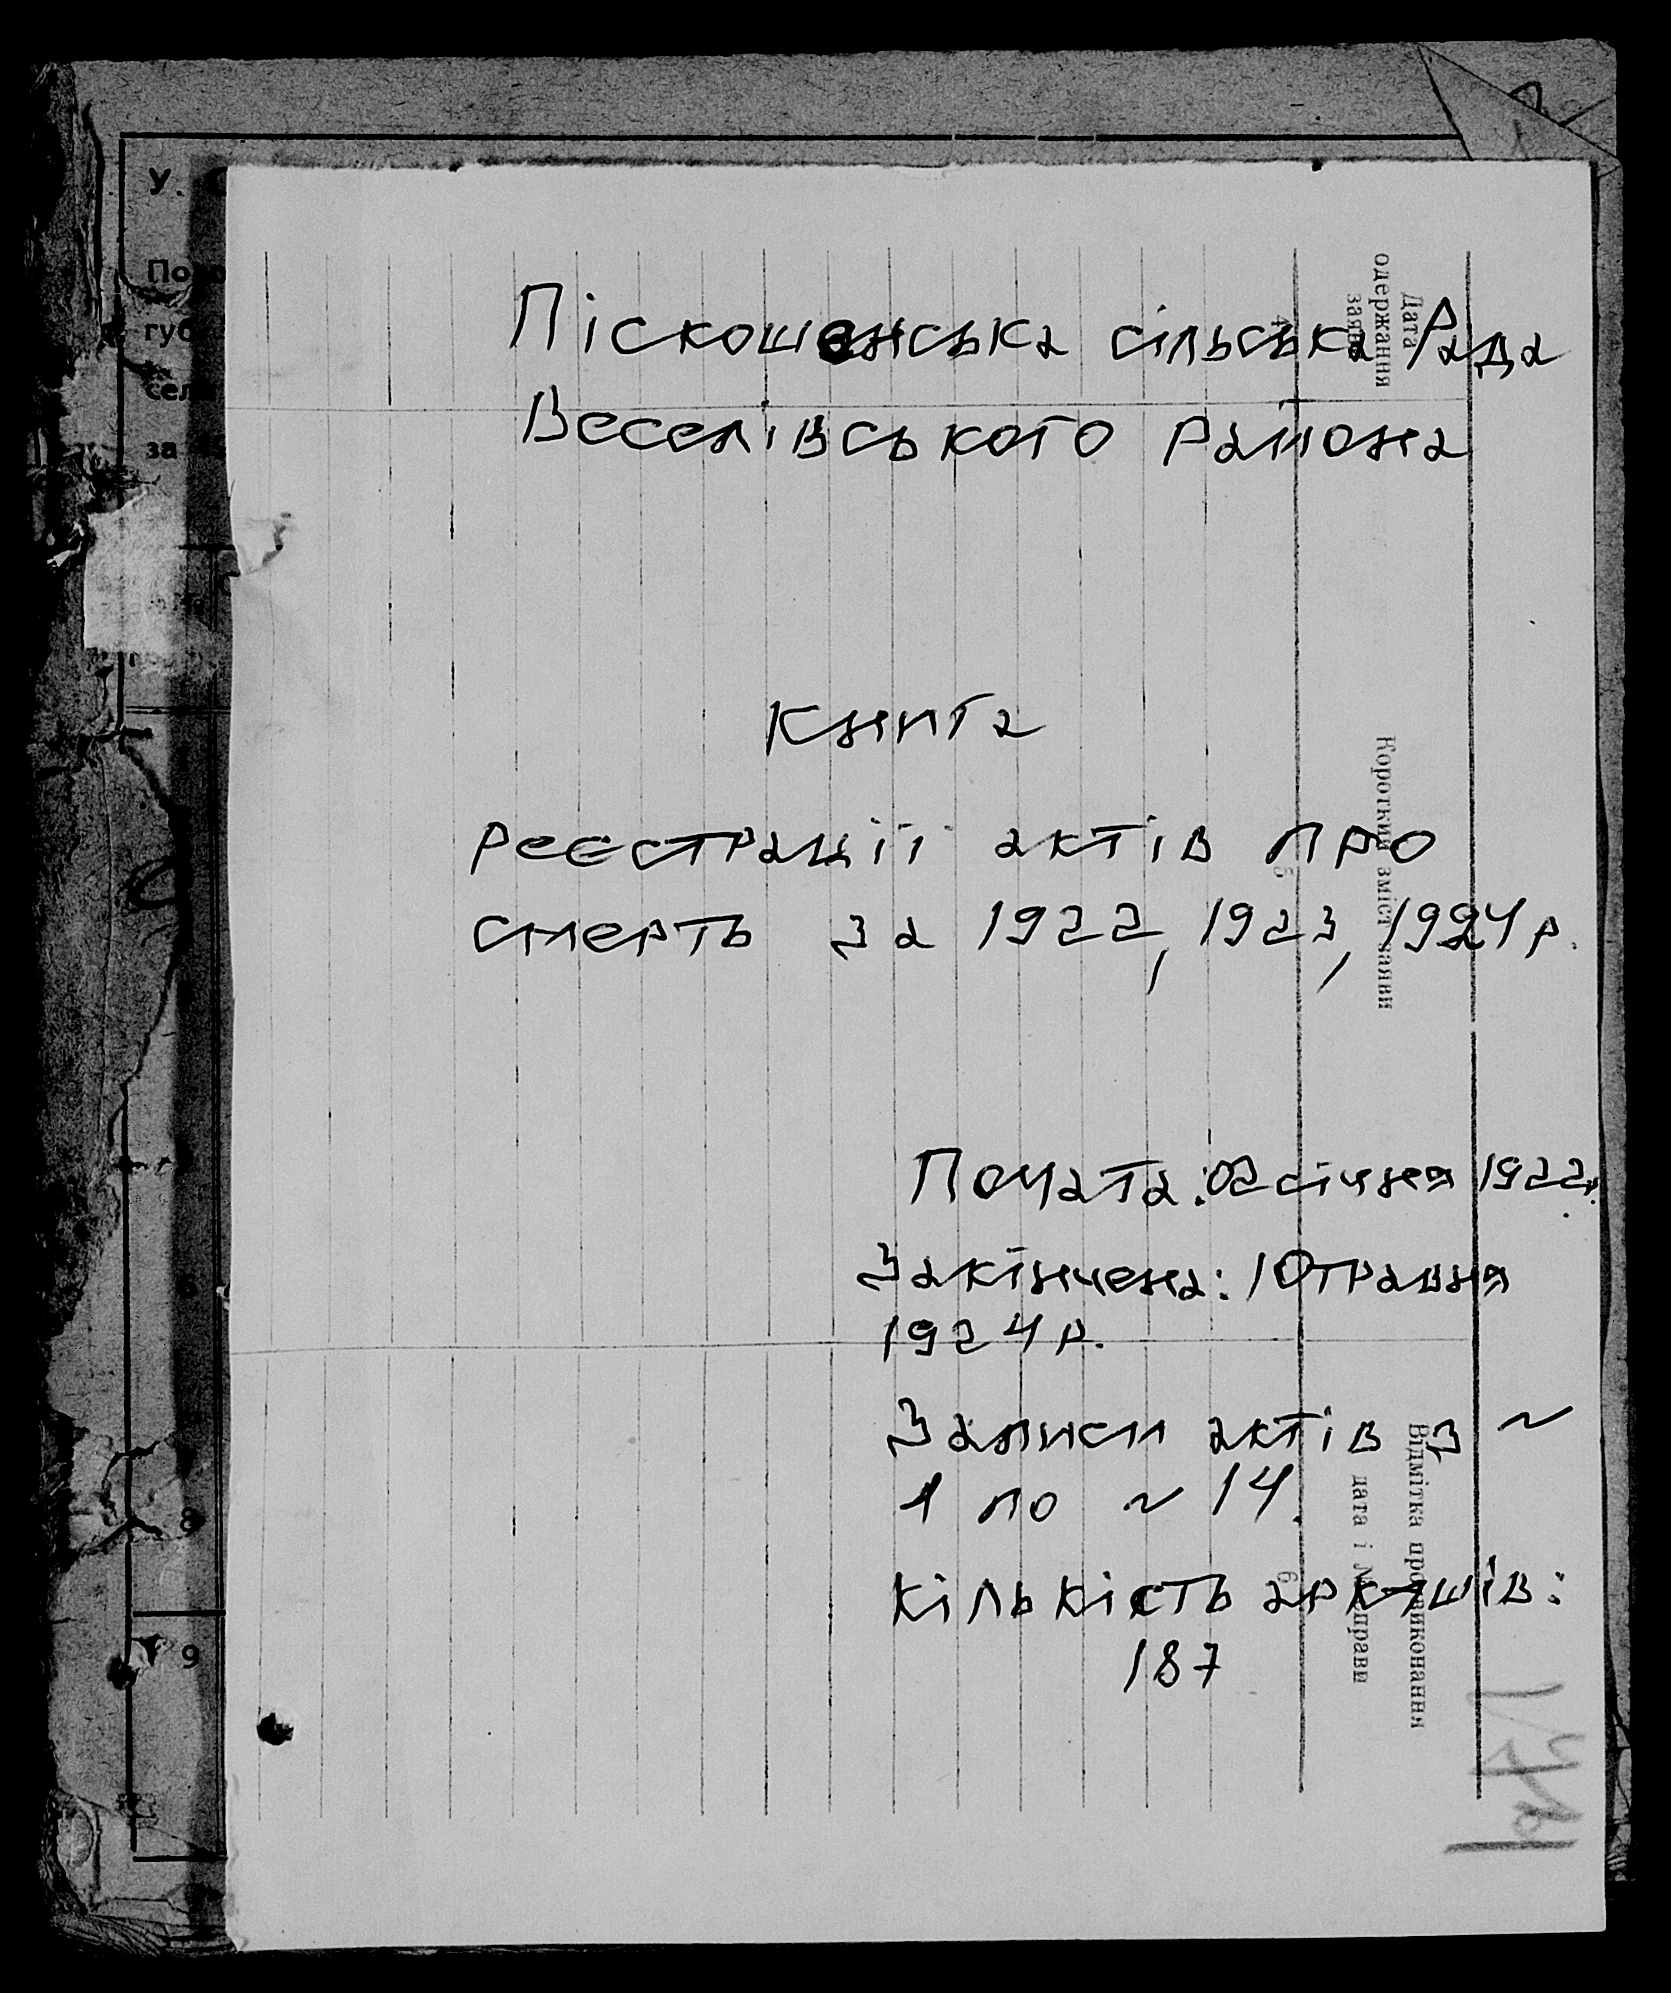 Піскошенська сільська Рада
Веселівського района
Книга
реєстрації актів про
смерть за 1922, 1923, 1924 р.
Почата: 02 січня 1922р.
Закінчена: 10 травня
1924 р.
Записи актів з ~
1 по ~ 14.
Кількість аркушів:
187
Дата
одержання
заяви
4
Короткий зміст заяви
5
Відмітка про виконання
дата і № справи
6
У.
губ
сел
за
8
9